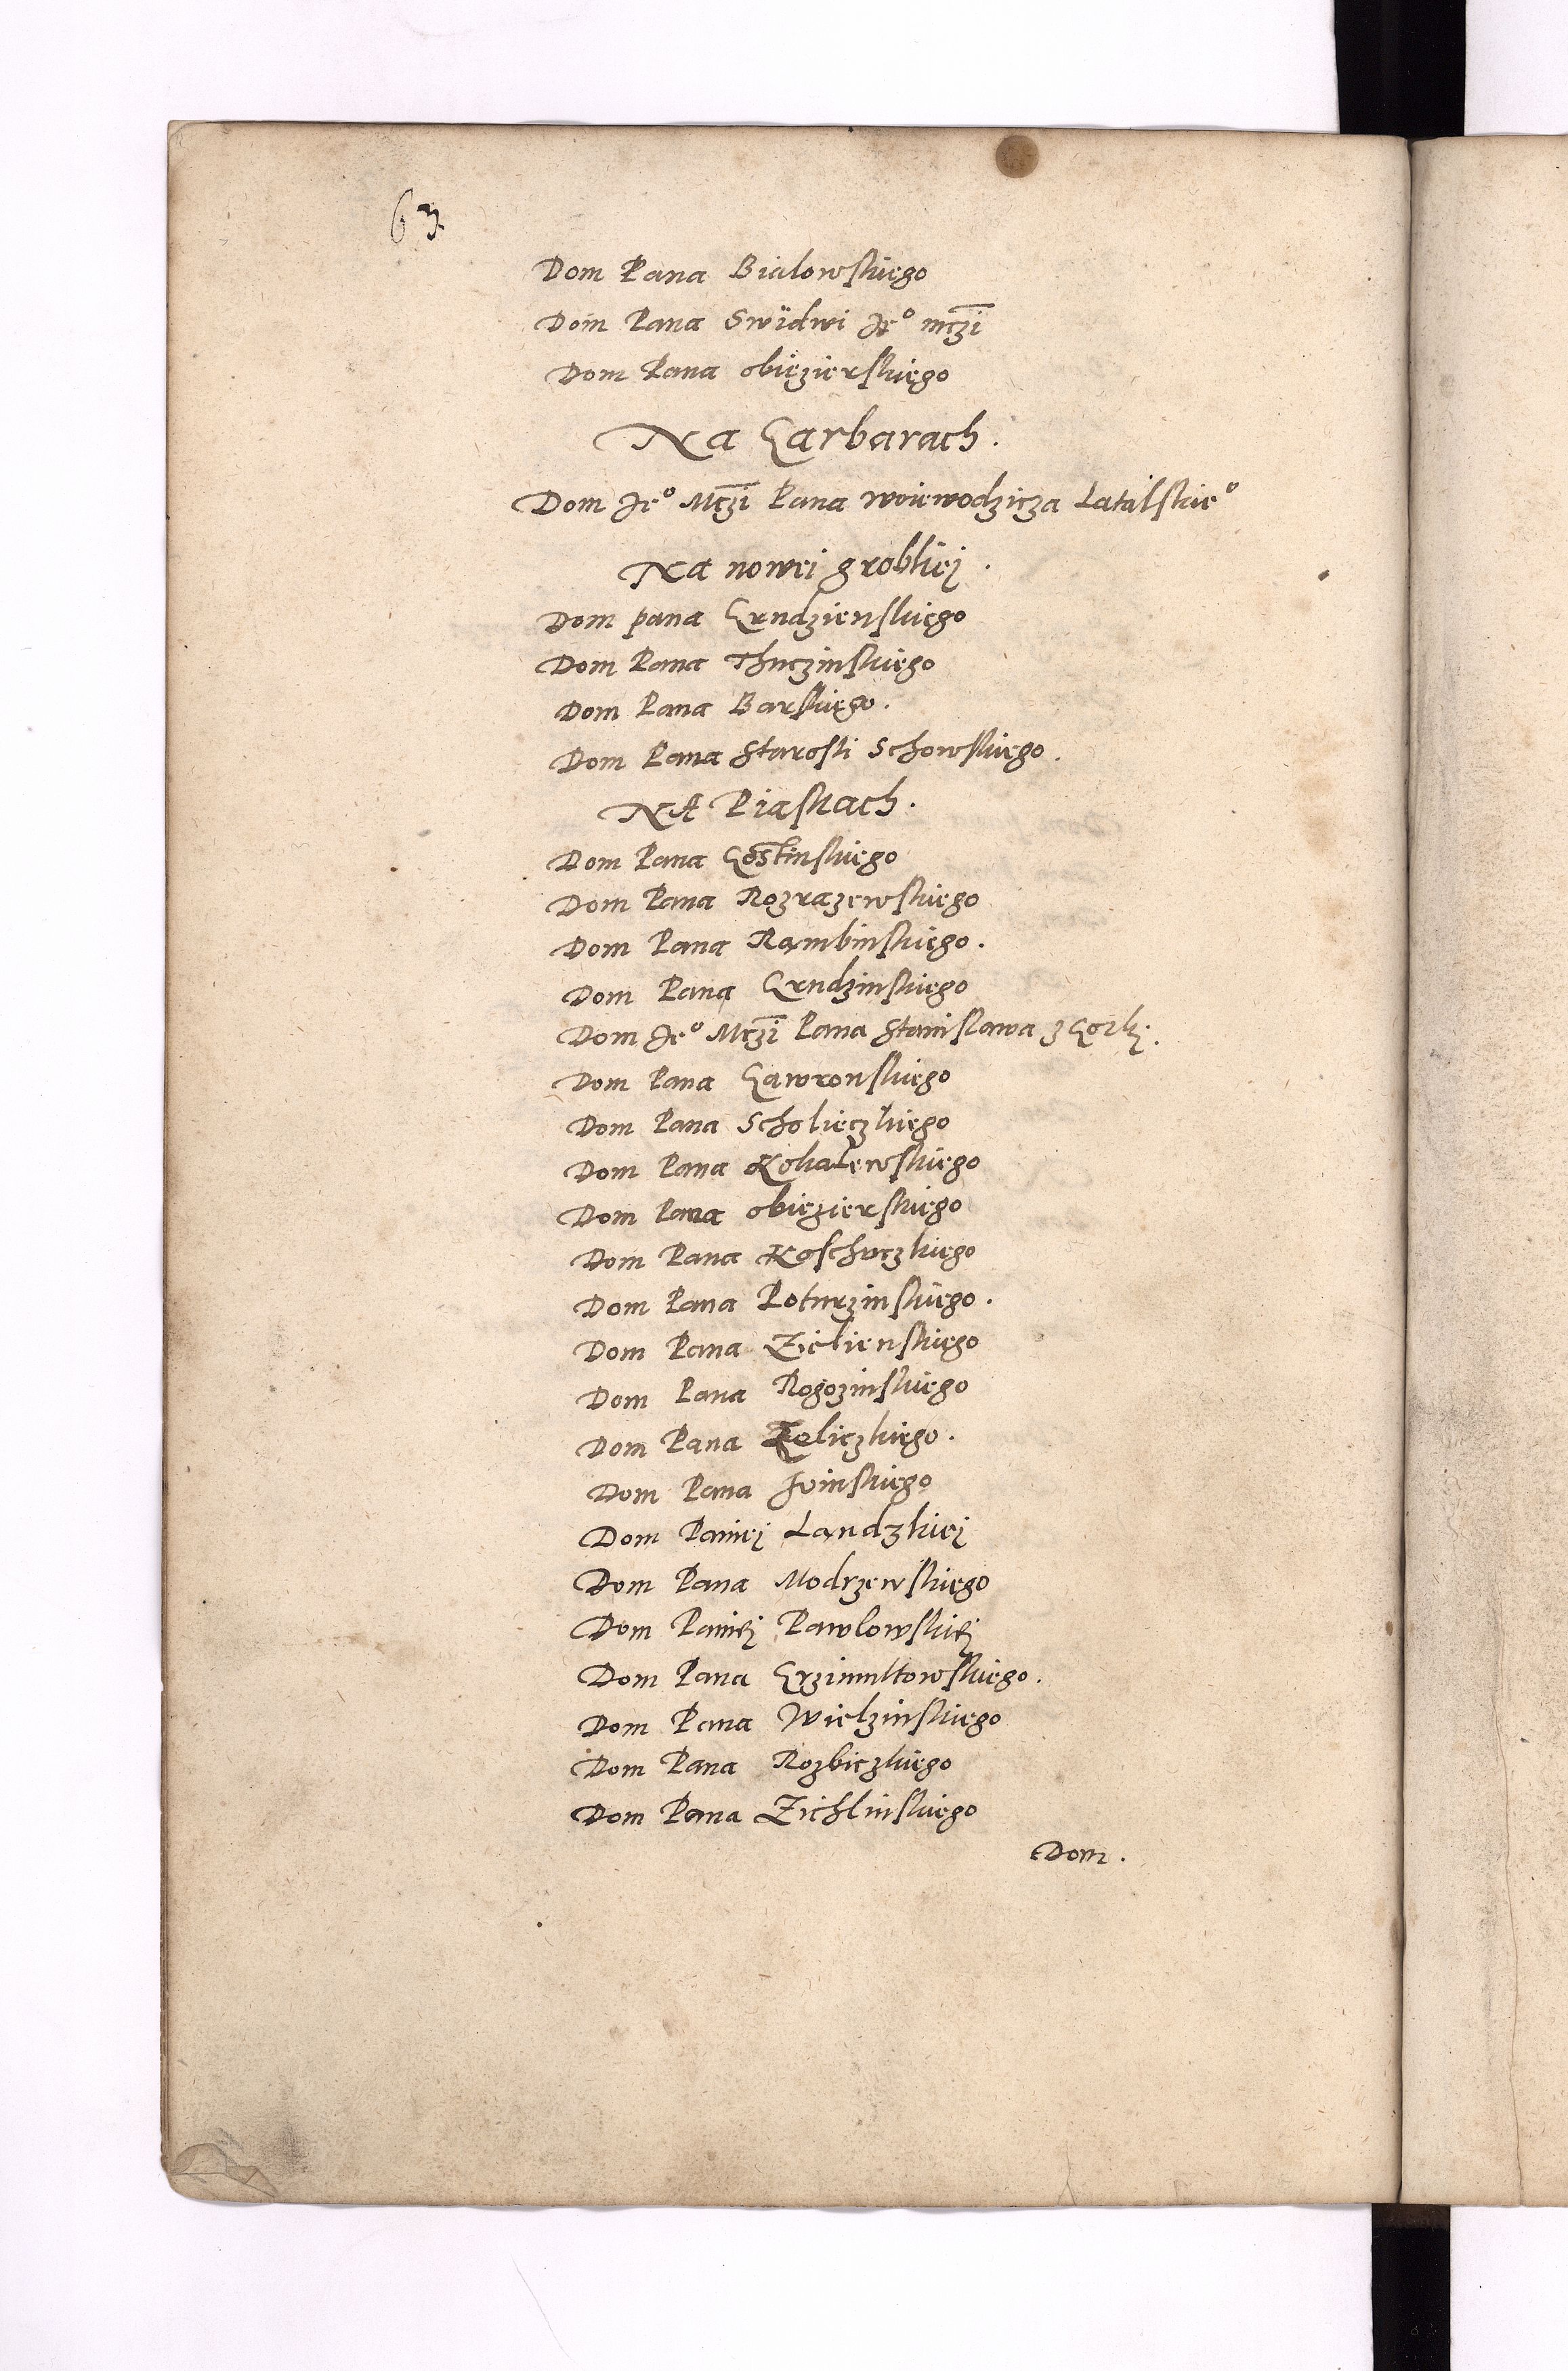 63
Dom Pana Bialowskiego
Dom Pana Swidwi Jeº mczi
Dom Pana obiezierskiego
Na Garbarach.
Dom Jeº Mczi Pana woiewodzicza Latalskieº
Na nowei grobliej.
Dom pana Grudzienskiego
Dom Pana Thuczinskiego
Dom Pana Barskiego.
Dom Pana Starosti Schowskiego.
NA Piaskach.
Dom Pana Gostinskiego
Dom Pana Rozrazewskiego
Dom Pana Rambinskiego.
Dom Pana Grudzinskiego
Dom Jeº Mczi Pana Stanislawa z Gorki.
Dom Pana Gawronskiego
Dom Pana Scholieczkiego
Dom Pana Kokalewskiego
Dom Pana obiezierskiego
Dom Pana Koschuczkiego
Dom Pana Poturzinskiego.
Dom Pana Zielienskiego
Dom Pana Rogozinskiego
Dom Pana
Dom Pana Jvinskiego
Dom Paniej Landzkiej
Dom Pana Modrzewskiego
Dom Paniej Pawlowskiej
Dom Pana Grzimultowskiego.
Dom Pana Wielzinskiego
Dom Pana Rozbiczkiego
Dom Pana Zichlinskiego
Dom.